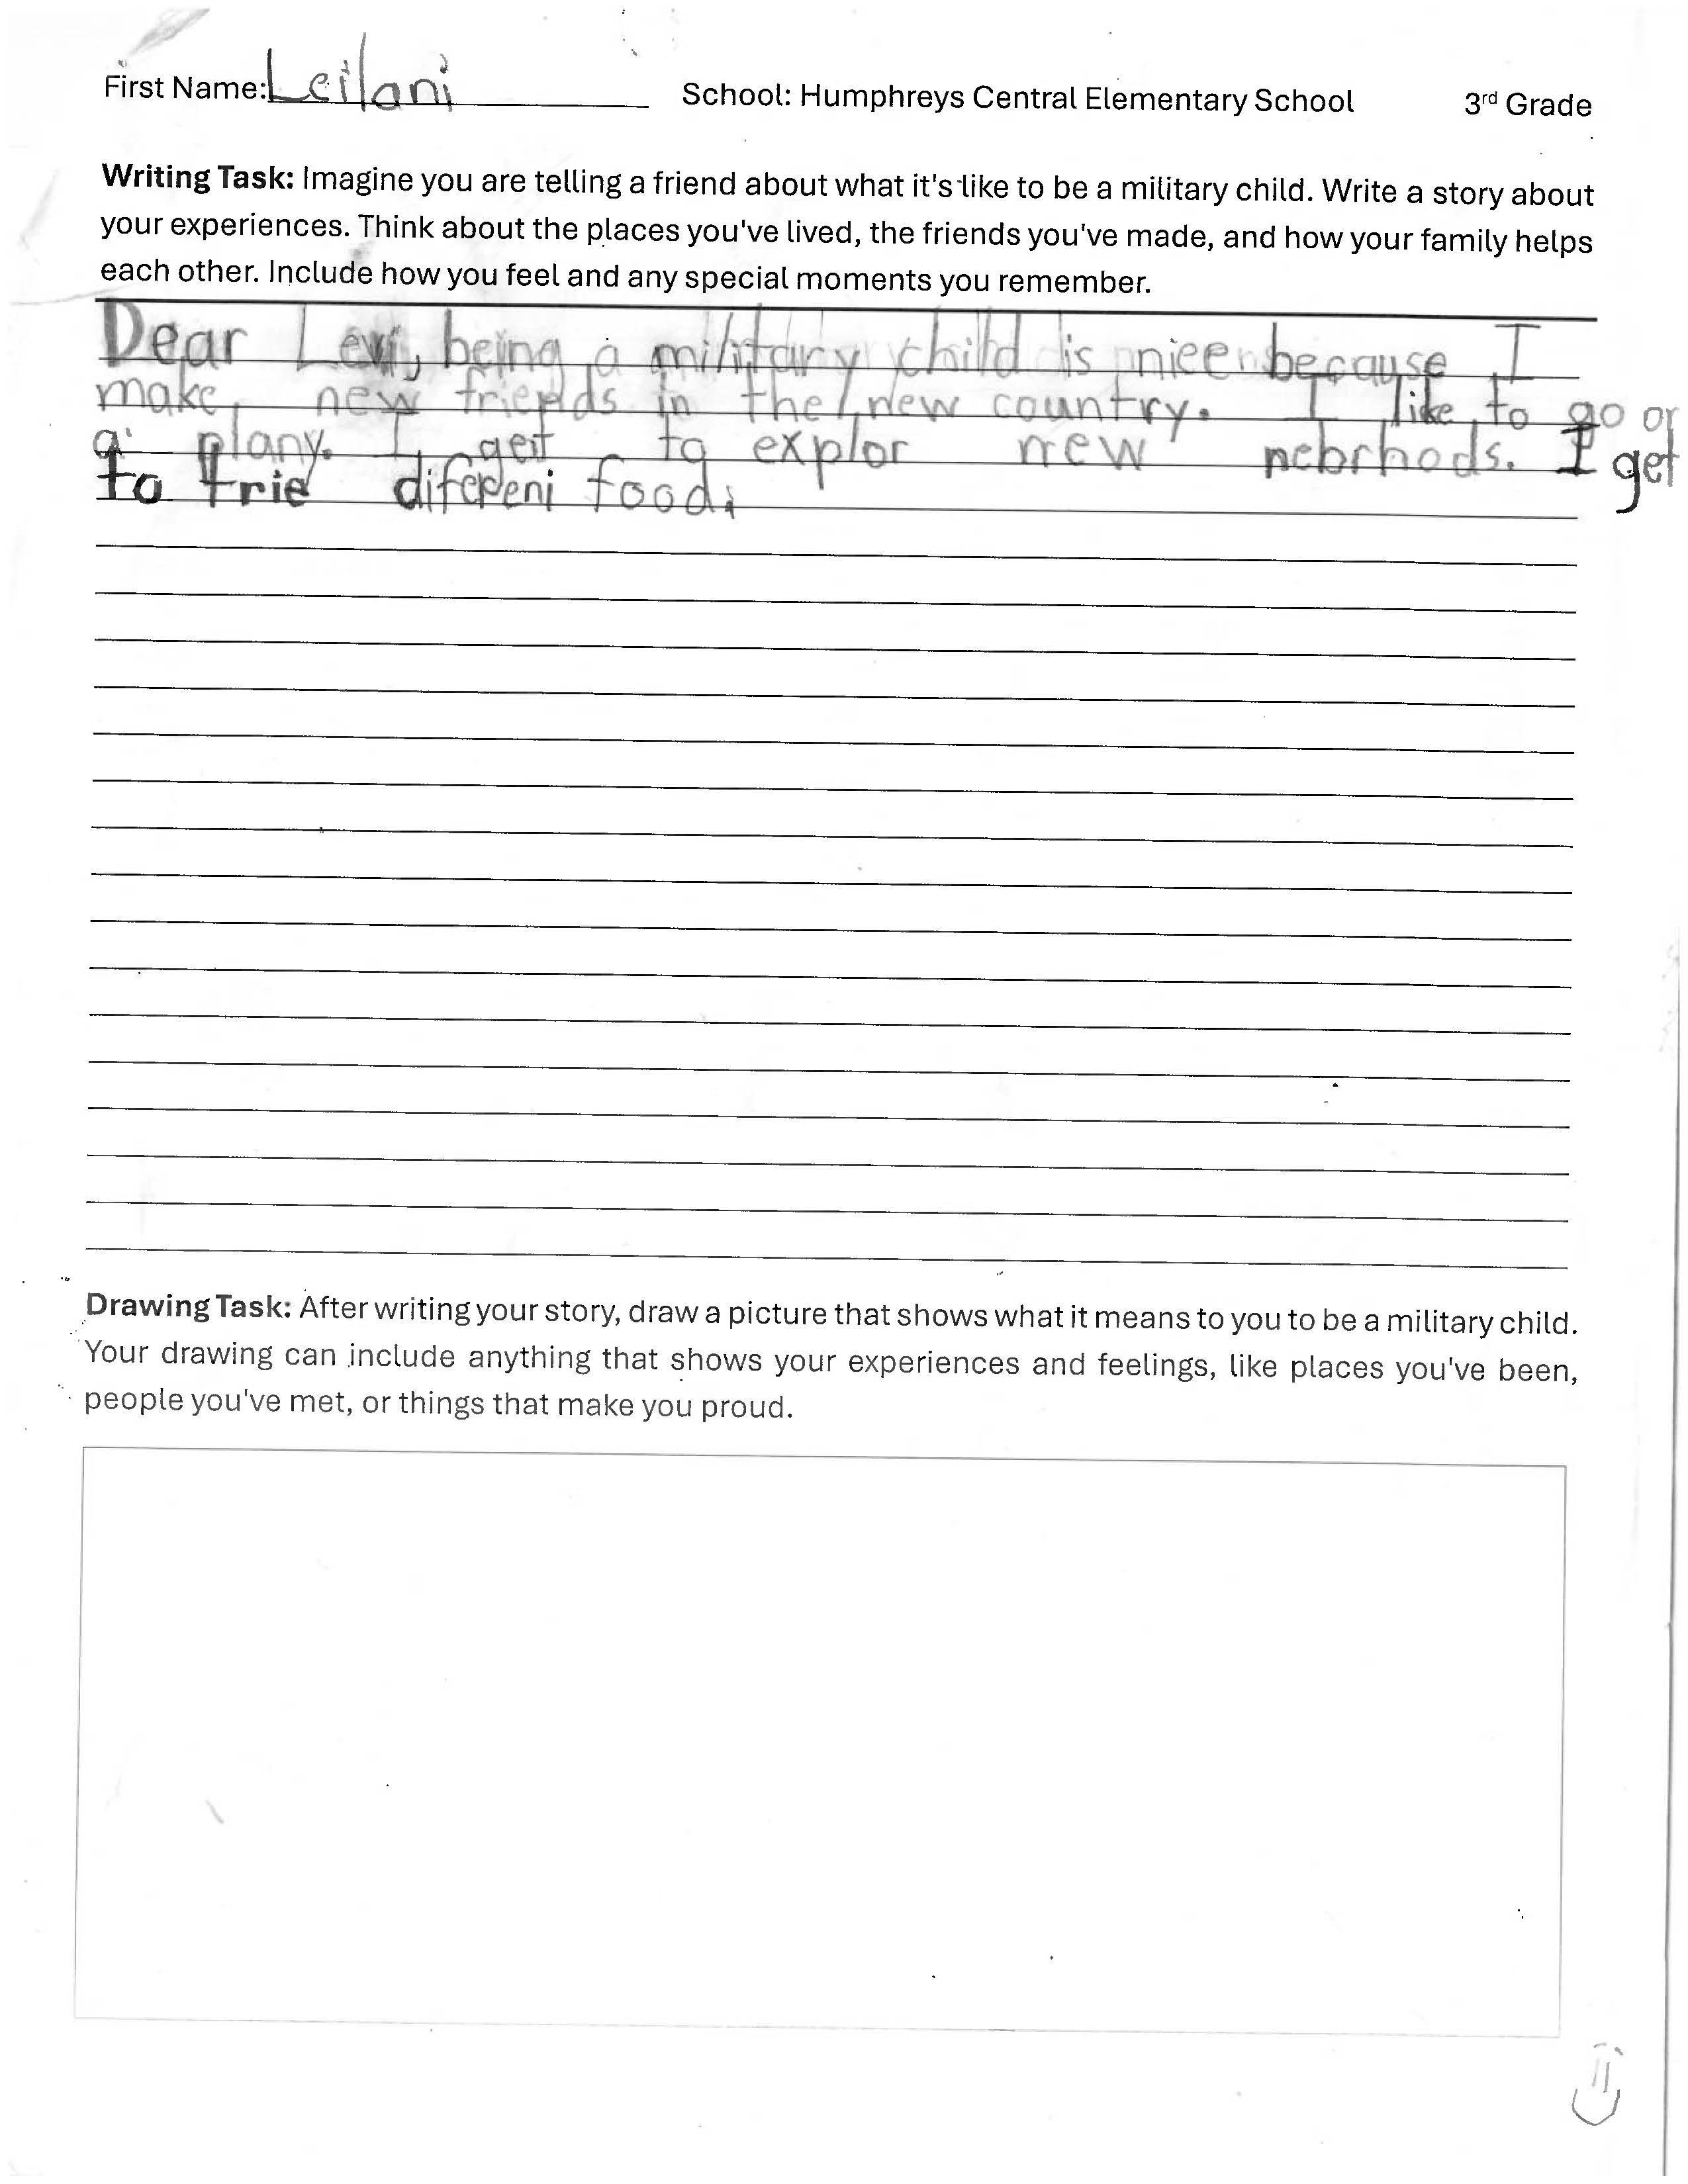 First Name: Leilani School: Humphreys Central Elementary School 3rd Grade
Writing Task: Imagine you are telling a friend about what it's like to be a military child. Write a story about
your experiences. Think about the places you've lived, the friends you've made, and how your family helps
each other. Include how you feel and any special moments you remember.
Dear Levi, being a military child is nice because I
make new friends in the new country. I like to go on
a plany. I get to explor new nebrhods. I get
to trie difereni food.
Drawing Task: After writing your story, draw a picture that shows what it means to you to be a military child.
Your drawing can include anything that shows your experiences and feelings, like places you've been,
people you've met, or things that make you proud.